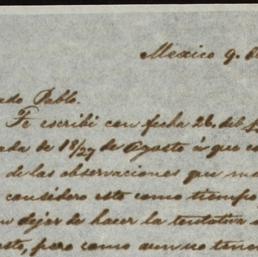 Mexico 9.
ado Pablo.
Te escribi con fecha 26. del
ada de 18/27 de Agosto á que
de las observaciones que
considero esto como tiempo
dejar de hacer la tentativa
pero como aun no